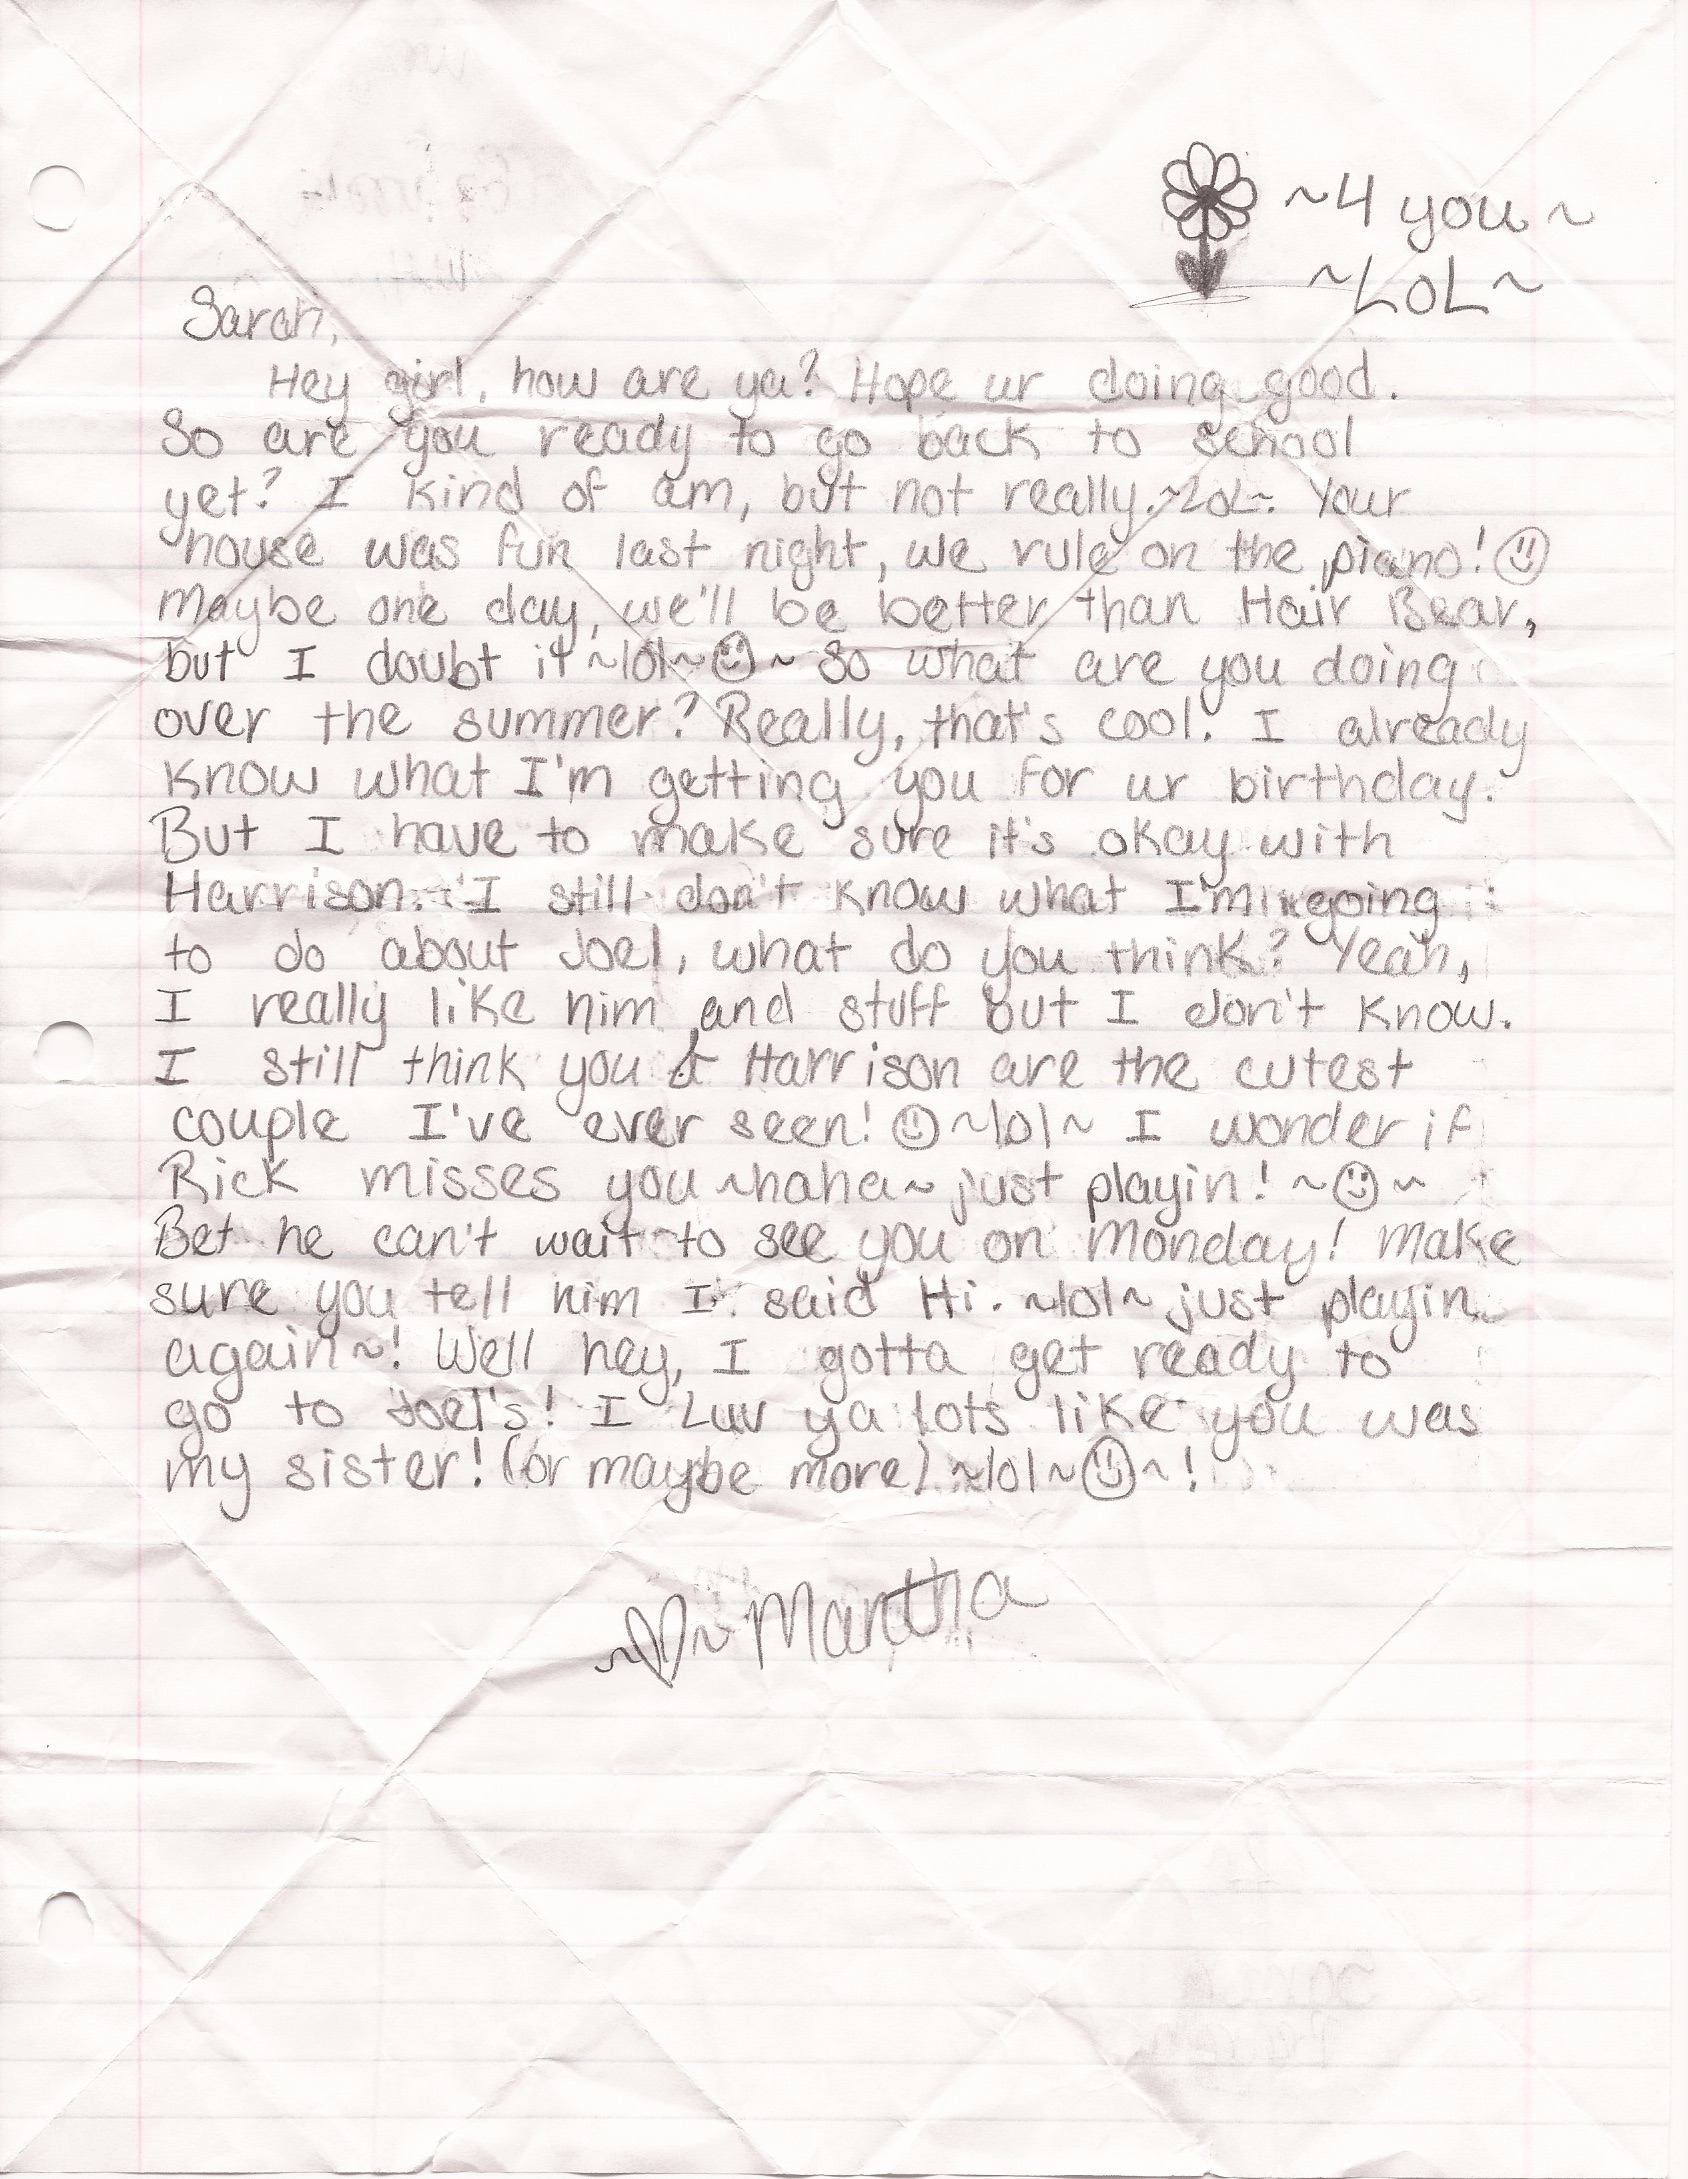 ~4 you~
~LOL~
Sarah,
Hey girl, how are ya? Hope ur doing good.
So are you ready to go back to school
yet? I kind of am, but not really.~LOL~. Your
house was fun last night, we rule on the piano! ☺
Maybe one day, we'll be better than Hair Bear,
but I doubt it ~lol~☺~ So what are you doing
over the summer? Really, that's cool. I already
know what I'm getting you for ur birthday.
But I have to make sure it's okay with
Harrison. I still don't know what I'm going
to do about Joel, what do you think? Yeah,
I really like him and stuff but I don't know.
I still think you & Harrison are the cutest
couple I've ever seen! ☺~lol~ I wonder if
Rick misses you ~haha~ just playin! ~☺~
Bet he can't wait to see you on Monday! Make
sure you tell him I said Hi. ~lol~ just playin
again~! Well hey, I gotta get ready to
go to Joel's! I Luv ya lots like you was
my sister! (or maybe more) ~lol~☺~!
~♡~ Martha